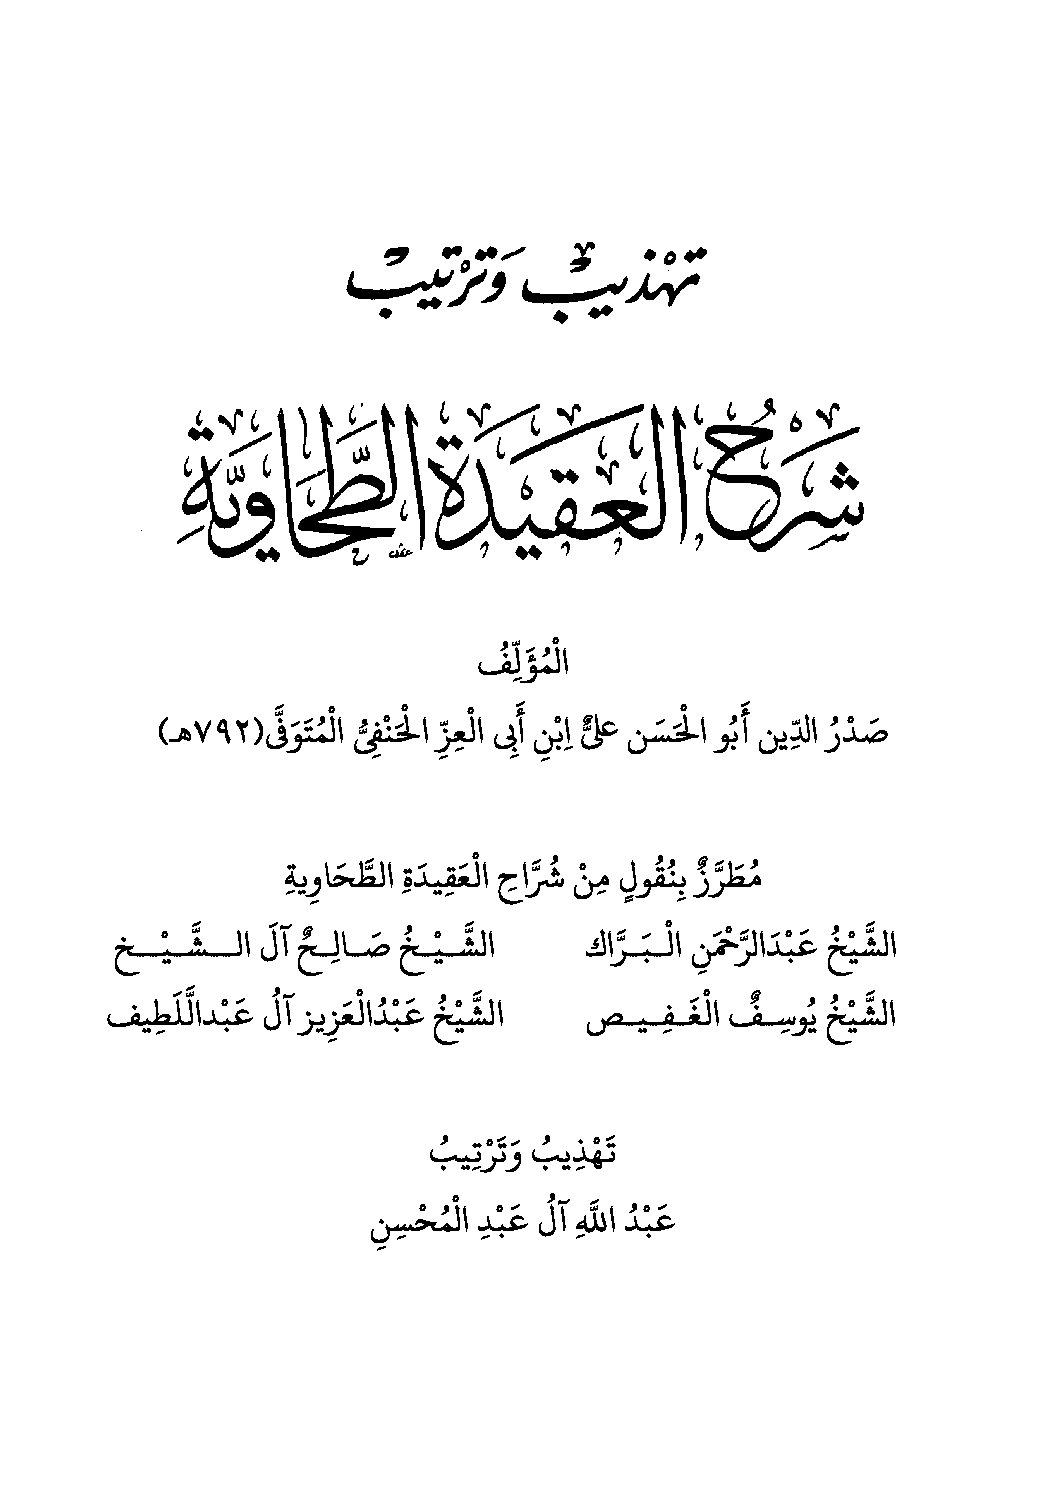 تهذيب وَترْتيب
شَرْحُ العَقِيدَةِ الطَّحَاوِيَّةِ
الْمُؤَلِّفُ
صَدْرُ الدِّين أَبُو الْحَسَن عَلِيٌّ اِبْنِ أَبِى الْعِزِّ الْحَنْفِيُّ الْمُتَوَفَّى(٧٩٢هـ)
مُطَرَّزٌ بِنُقُولٍ مِنْ شُرَّاحِ الْعَقِيدَةِ الطَّحَاوِيةِ
الشَّيْخُ عَبْدَالرَّحْمَنِ الْبَرَّاك الشَّيْخُ صَالِحٌ آلَ الشَّيْخ
الشَّيْخُ يُوسِفٌ الْغَفِيص الشَّيْخُ عَبْدُالْعَزِيز آلُ عَبْدالَّلَطِيف
تَهْذِيبُ وَتَرْتِيبُ
عَبْدُ اللَّهِ آلُ عَبْدِ الْمُحْسِنِ